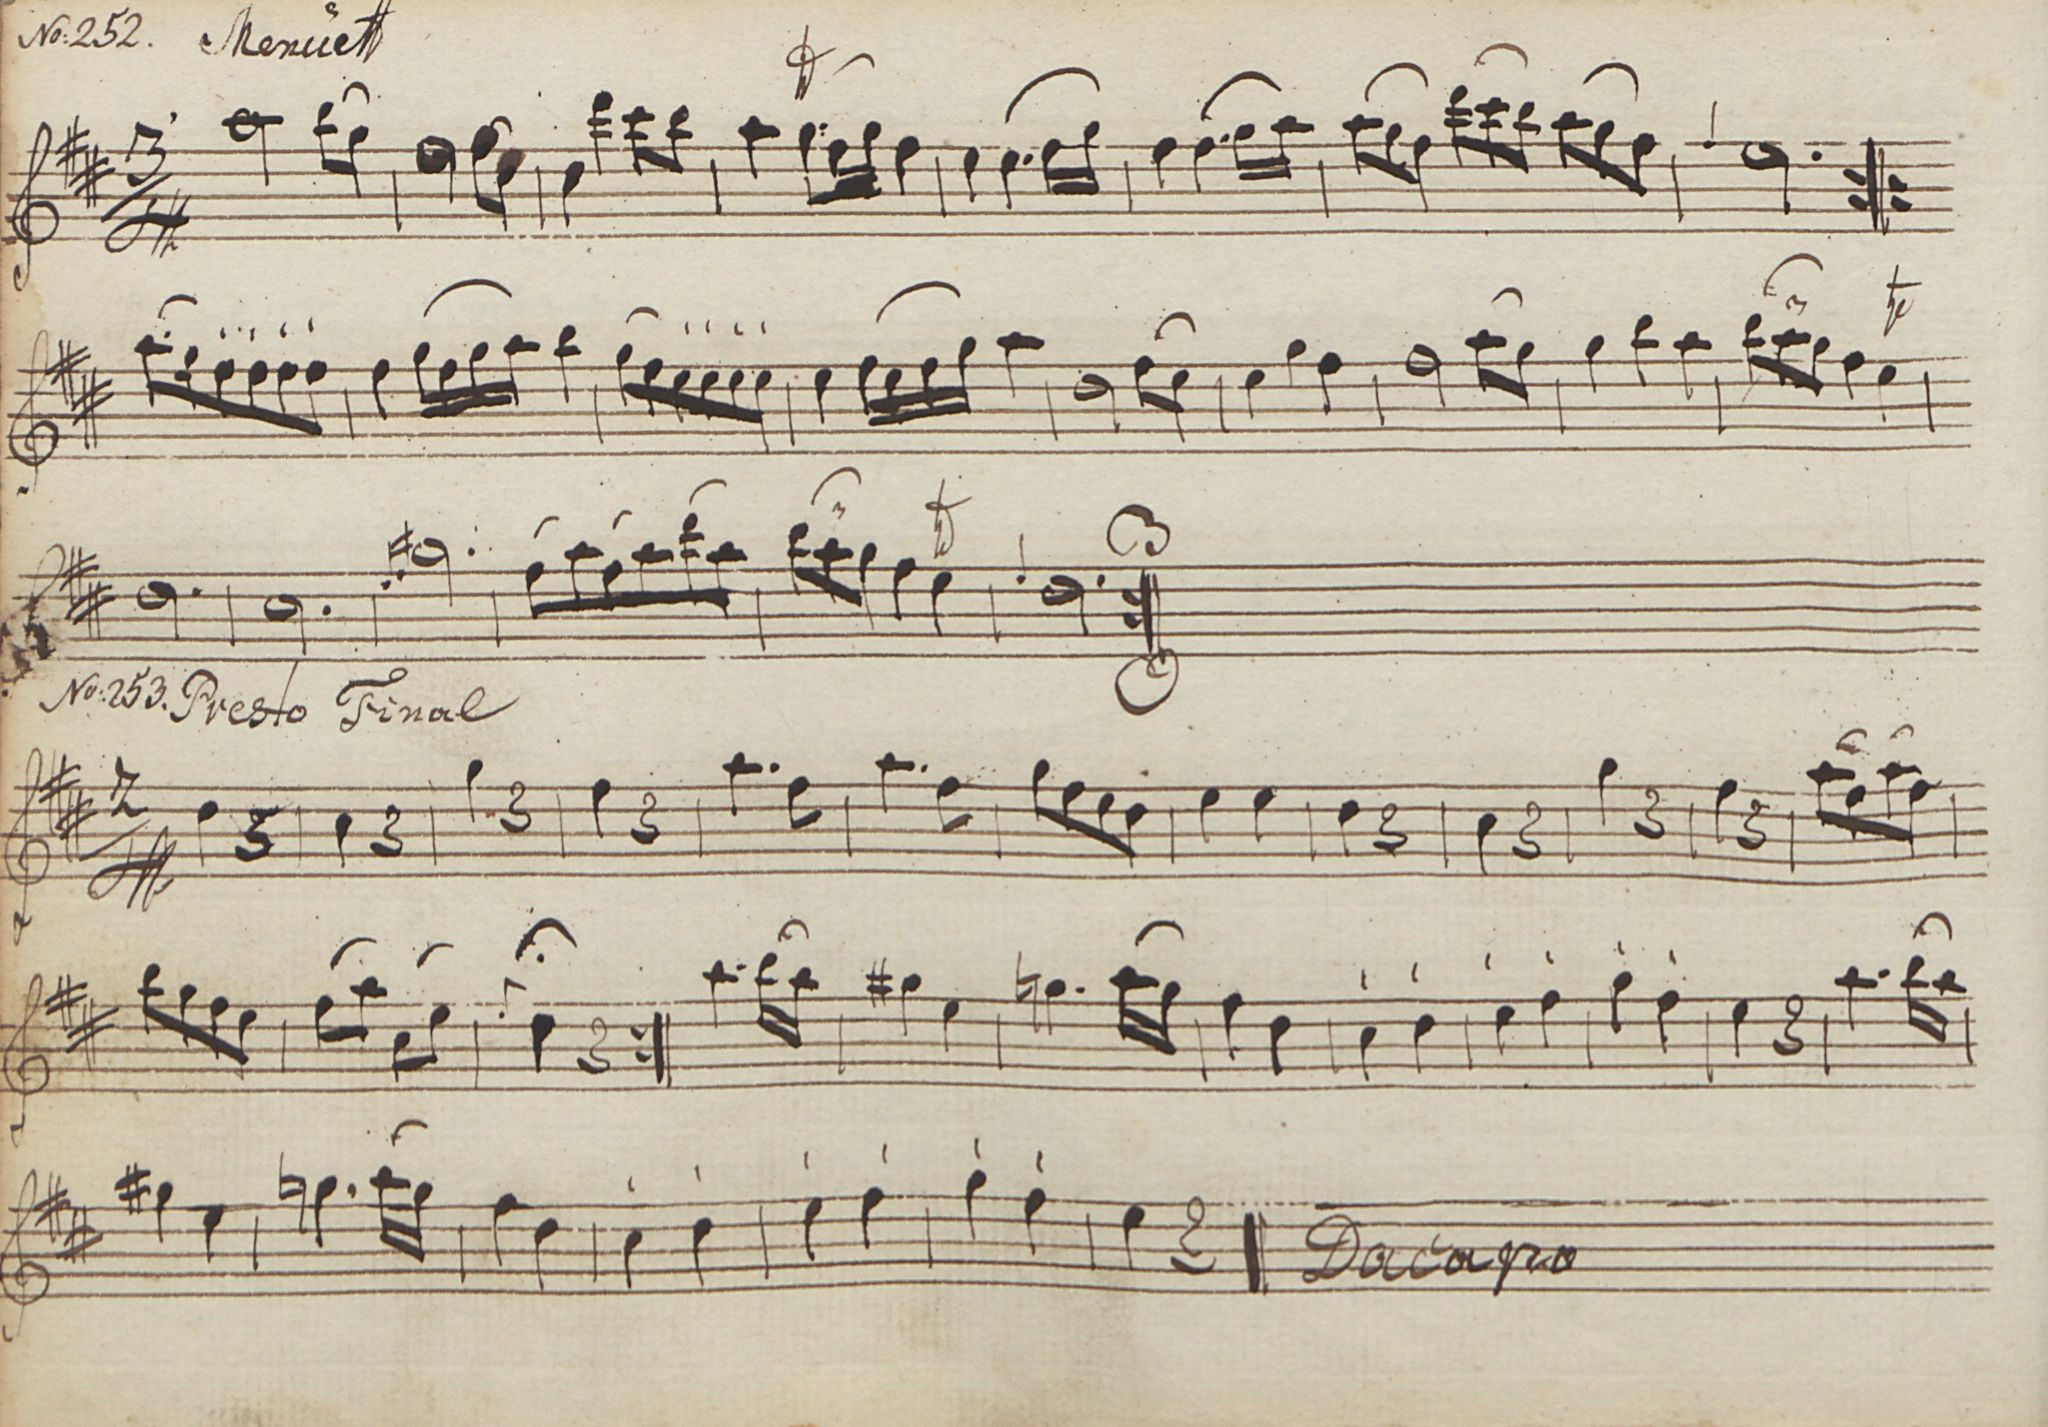 No: 252. Menuett
No: 253. Presto Final
Dacapo